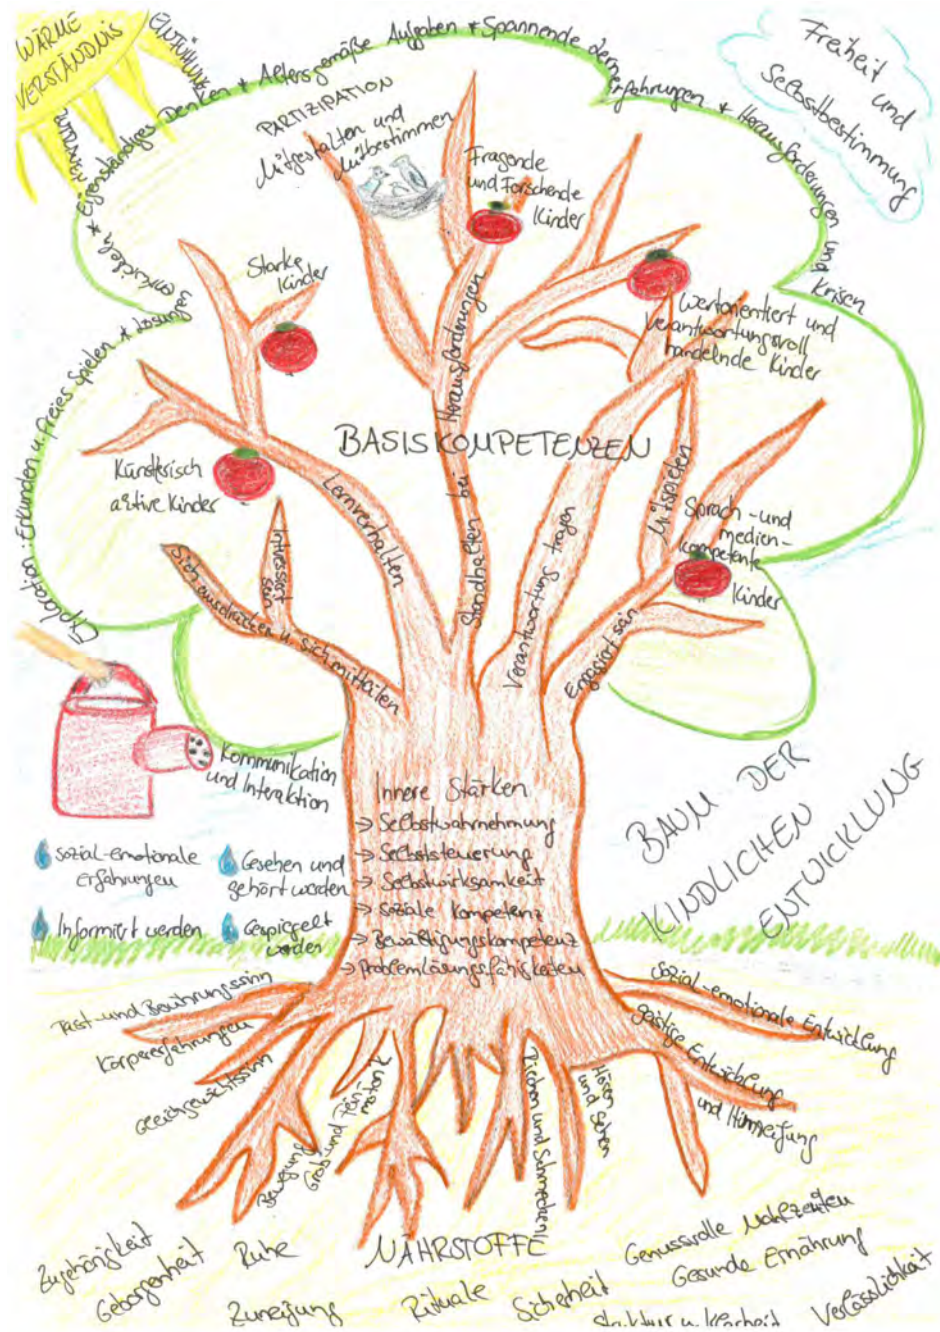 WÄRME
VERSTÄNDNIS
EINFÜHLUNG
Freiheit und
Selbstbestimmung
Exploration: Erkunden u. freies Spielen * Lösungen entwickeln * Eigenständiges Denken * Altersgemäße Aufgaben * Spannende Lernerfahrungen * Herausforderungen und Krisen
PARTIZIPATION
Mitgestalten und
Mitbestimmen
Fragende
und Forschende
Kinder
Starke
Kinder
Wertorientiert und
verantwortungsvoll
handelnde Kinder
Künstlerisch
aktive Kinder
Sprach- und
medien-
kompetente
Kinder
BASISKOMPETENZEN
Sich ausdrücken u. sich mitteilen
Interessiert
sein
Lernverhalten
Standhalten bei Herausforderungen
Verantwortung tragen
Engagiert sein
Mitspielen
Kommunikation
und Interaktion
sozial-emotionale
Erfahrungen
Gesehen und
gehört werden
Informiert werden
Gespiegelt
werden
Innere Stärken
→ Selbstwahrnehmung
→ Selbststeuerung
→ Selbstwirksamkeit
→ soziale Kompetenz
→ Bewältigungskompetenz
→ Problemlösungsfähigkeiten
BAUM DER
KINDLICHEN
ENTWICKLUNG
Tast- und Berührungssinn
Körpererfahrungen
Gleichgewichtssinn
Bewegung
Grob- und Fein-
motorik
Riechen und Schmecken
Hören
und Sehen
sozial-emotionale Entwicklung
geistige Entwicklung
und Hirnreifung
NÄHRSTOFFE
Zugehörigkeit
Geborgenheit
Ruhe
Zuneigung
Rituale
Sicherheit
Genussvolle Mahlzeiten
Gesunde Ernährung
Struktur u. Klarheit
Verlässlichkeit